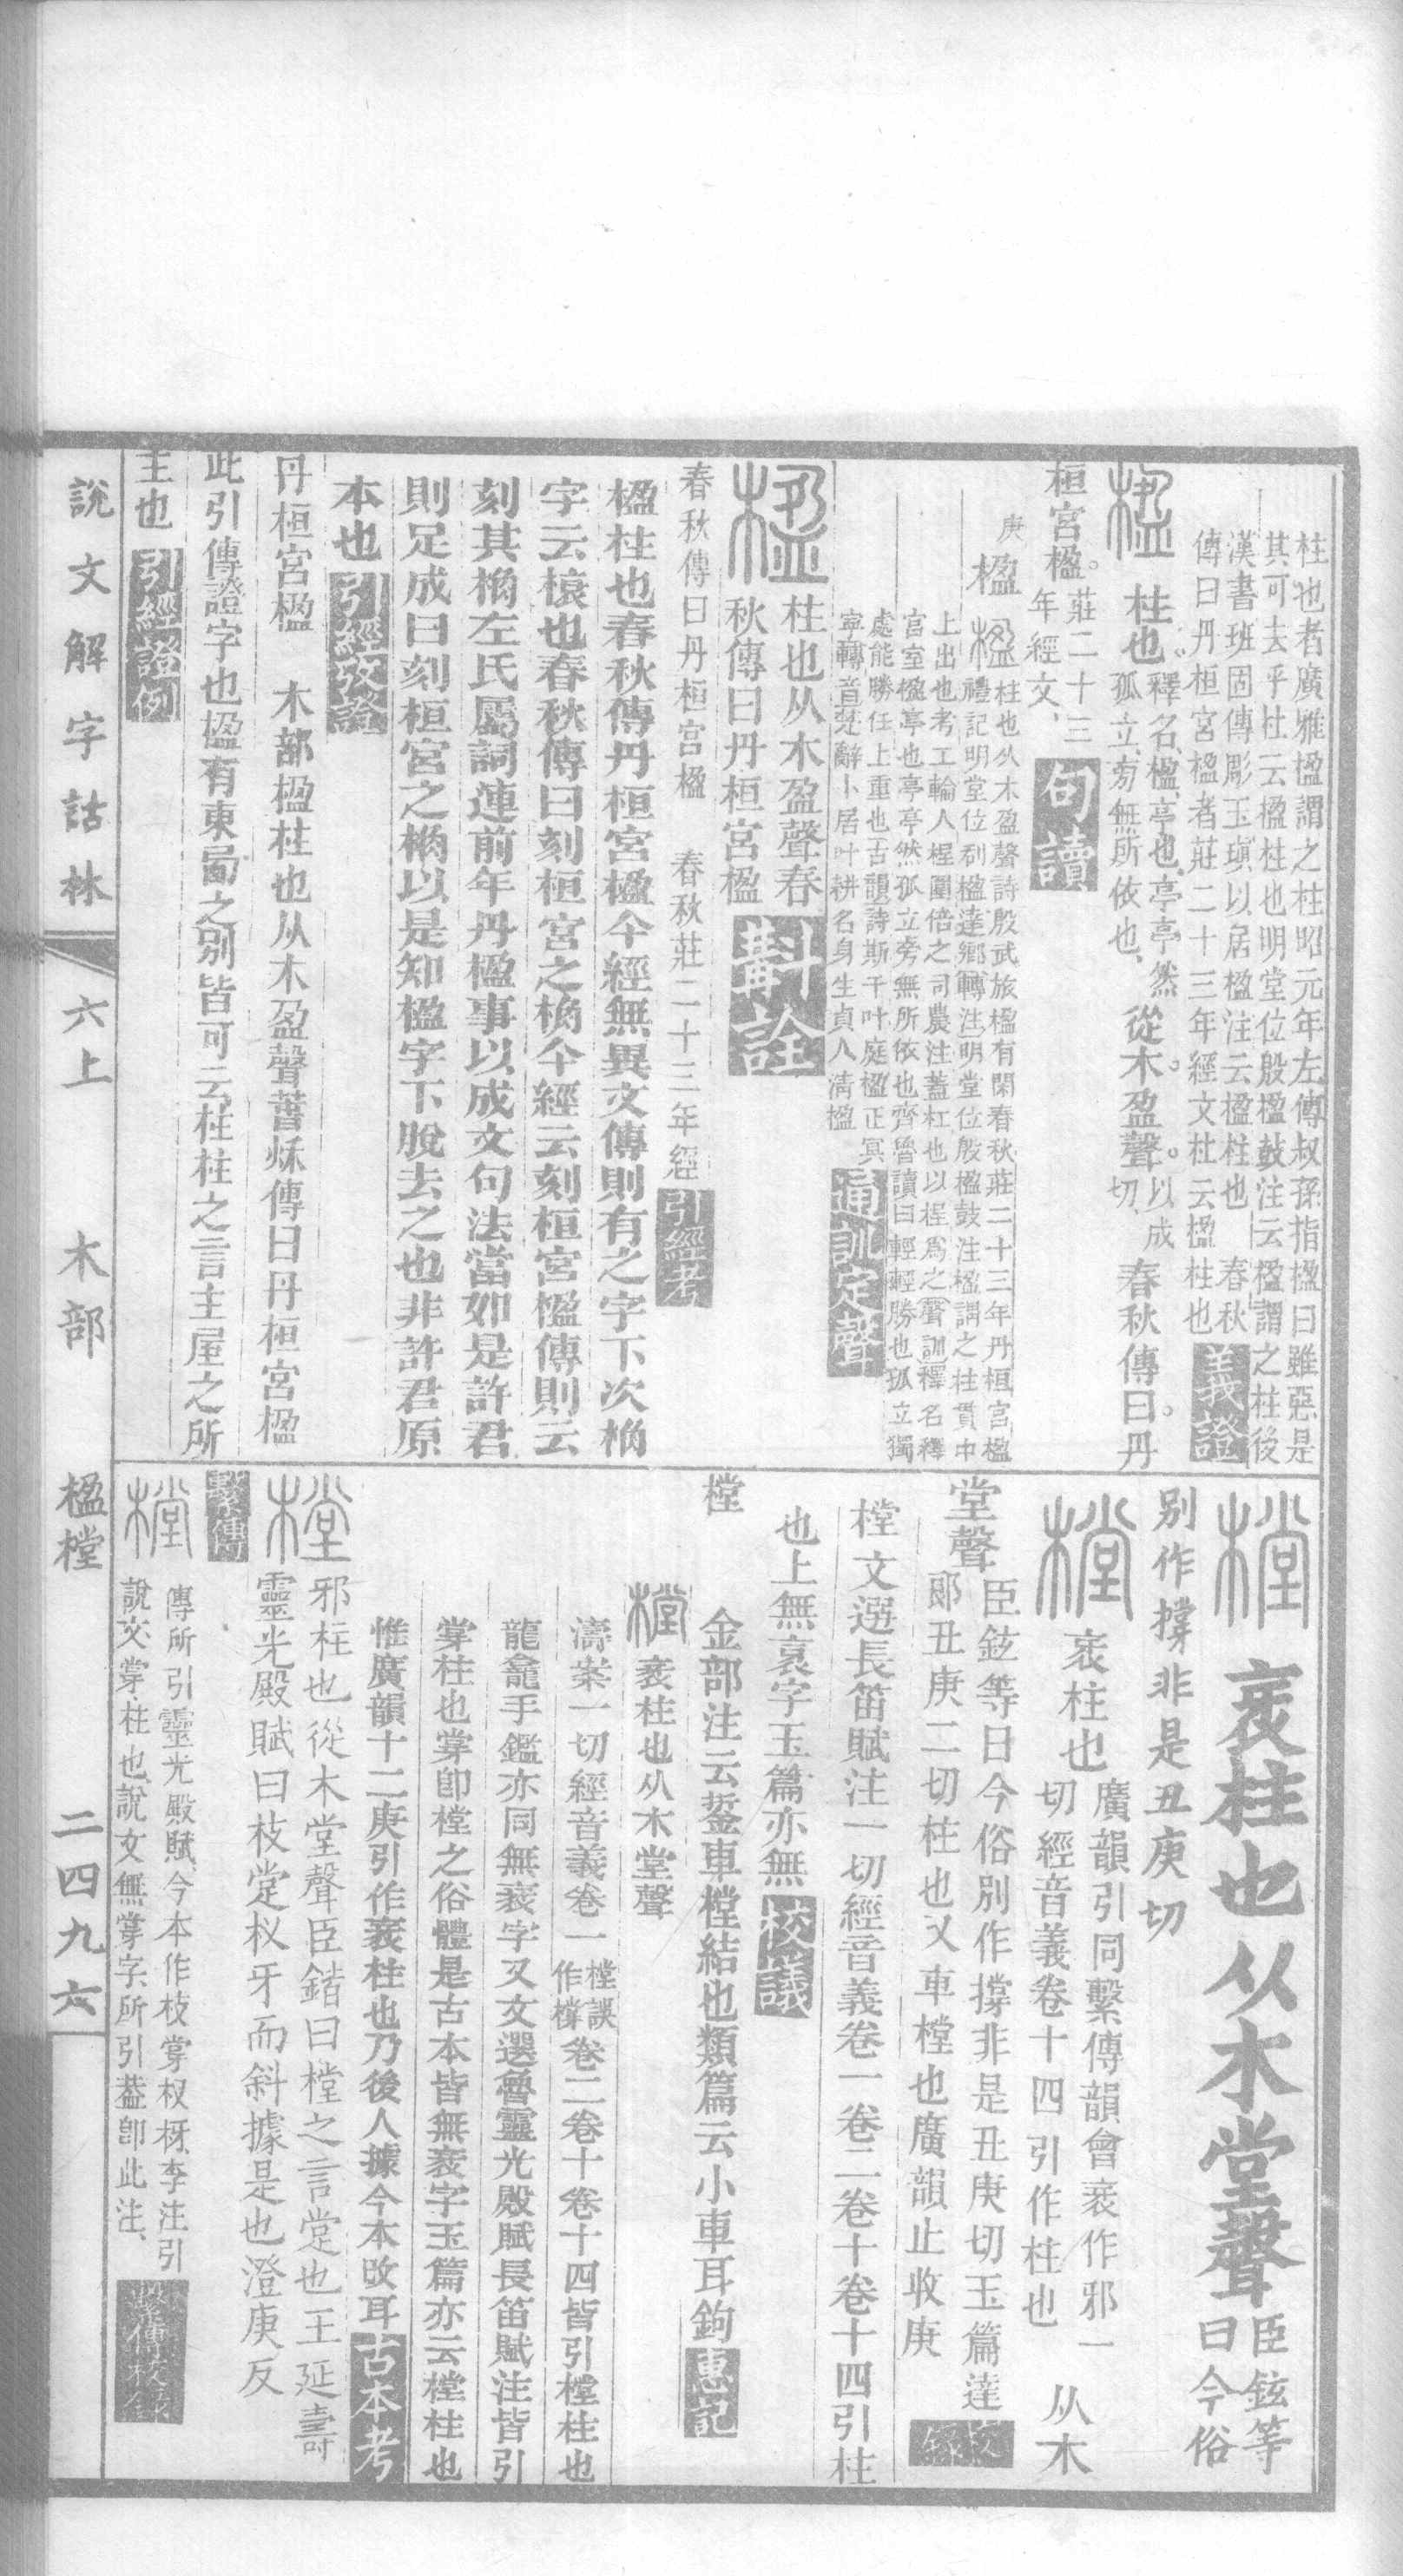 柱也者廣雅楹謂之柱昭元年左傳叔孫指楹曰雖惡是
其可去乎杜云楹柱也明堂位殷楹鼓注云楹謂之柱後
漢書班固傳彫玉瑱以居楹注云楹柱也　春秋
傳曰丹桓宮楹者莊二十三年經文杜云楹柱也
義證
楹　柱也。釋名、楹、亭也、亭亭、然
孤立、旁無所依也、從木。盈聲。以成
切、春秋傳曰。丹
桓宮楹。莊二十三
年經文、句讀
庚
楹　楹柱也从木盈聲詩殷武旅楹有閑春秋莊二十三年丹桓宮楹
禮記明堂位刻楹達鄉轉注明堂位殷楹鼓注楹謂之柱貫中
上出也考工輪人桯圍倍之司農注蓋杠也以桯爲之聲訓釋名釋
宮室楹亭也亭亭然孤立旁無所依也齊魯讀曰輕輕勝也孤立獨
處能勝任上重也古韻詩斯干叶庭楹正冥
寧轉音楚辭卜居叶耕名身生貞人清楹
通訓定聲
楹　柱也从木盈聲春
秋傳曰丹桓宮楹　斠詮
春秋傳曰丹桓宮楹　春秋莊二十三年經　引經考
楹柱也春秋傳丹桓宮楹今經無異文傳則有之字下次桷
字云榱也春秋傳曰刻桓宮之桷今經云刻桓宮楹傳則云
刻其桷左氏屬詞連前年丹楹事以成文句法當如是許君
則足成曰刻桓宮之桷以是知楹字下脫去之也非許君原
本也　引經攷證
丹桓宮楹　木部楹柱也从木盈聲萅秌傳曰丹桓宮楹
此引傳證字也楹有東西之別皆可云柱柱之言主屋之所
主也　引經證例
樘　衺柱也从木堂聲臣鉉等
曰今俗
別作撐非是丑庚切
樘　衺柱也廣韻引同繫傳韻會衺作邪一
切經音義卷十四引作柱也　从木
堂聲臣鉉等曰今俗別作撐非是丑庚切玉篇達
郎丑庚二切柱也又車樘也廣韻止收庚　校錄
樘　文選長笛賦注一切經音義卷一卷二卷十卷十四引柱
也上無衺字玉篇亦無　校議
樘　金部注云鋞車樘結也類篇云小車耳鉤　惠記
樘　衺柱也从木堂聲
濤案一切經音義卷一樘誤
作橕卷二卷十卷十四皆引樘柱也
龍龕手鑑亦同無衺字又文選魯靈光殿賦長笛賦注皆引
牚柱也牚卽樘之俗體是古本皆無衺字玉篇亦云樘柱也
惟廣韻十二庚引作衺柱也乃後人據今本改耳　古本考
樘　邪柱也從木堂聲臣鍇曰樘之言堂也王延壽
靈光殿賦曰枝樘杈牙而斜據是也澄庚反
繫傳
樘　傳所引靈光殿賦、今本作枝牚杈枒、李注引
說文、牚、柱也、說文無牚字、所引葢卽此注、
繫傳校錄
說文解字詁林　六上　木部　楹樘　二四九六